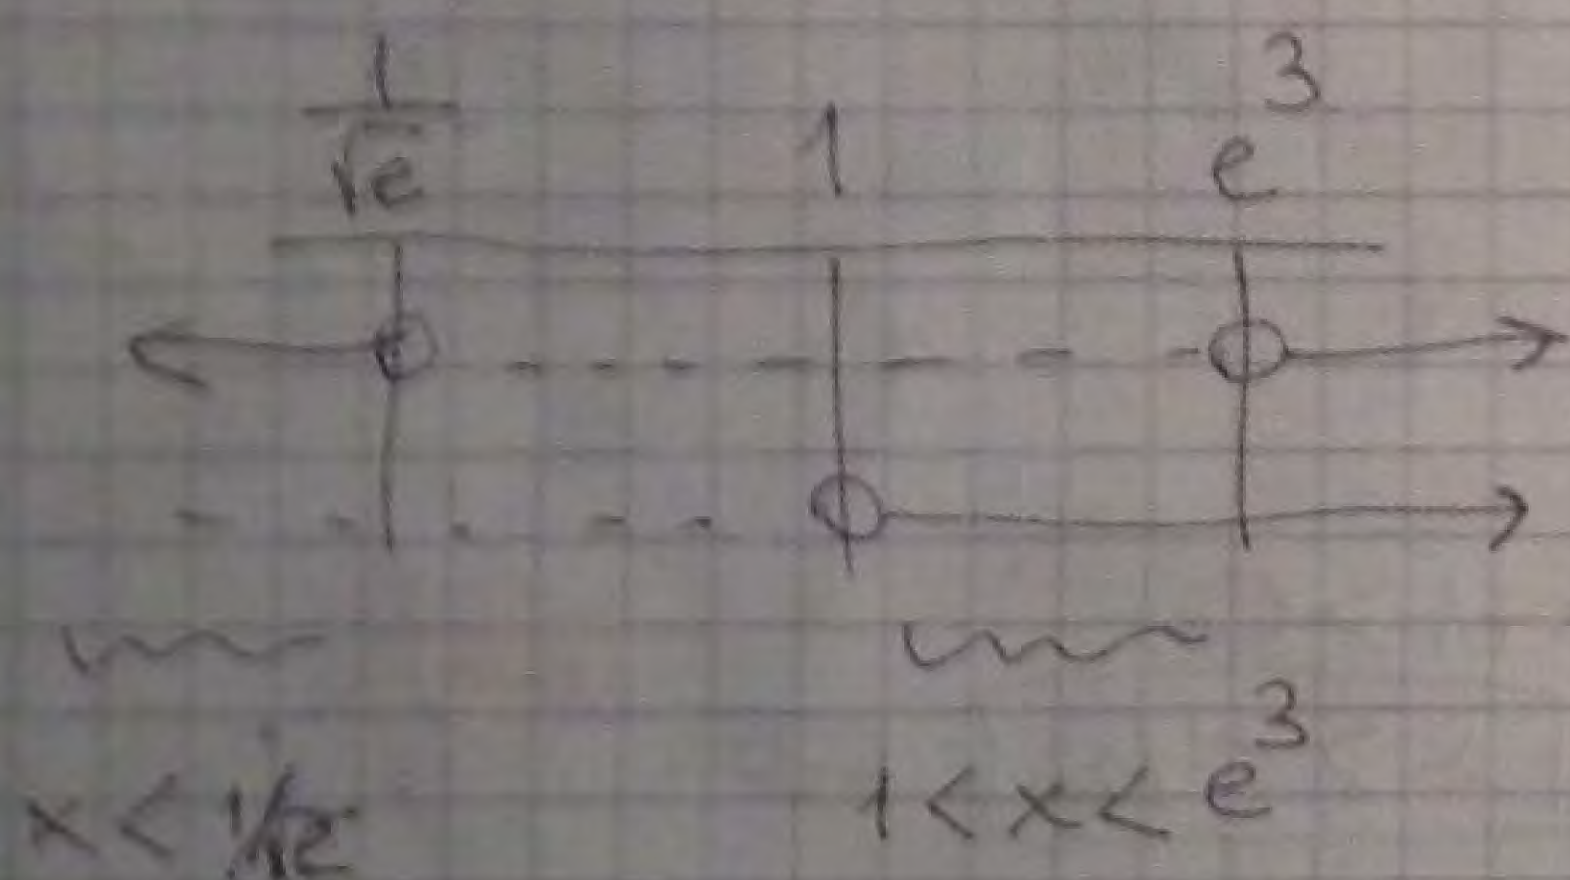 1/√e 1 e³
x < 1/√e 1 < x < e³